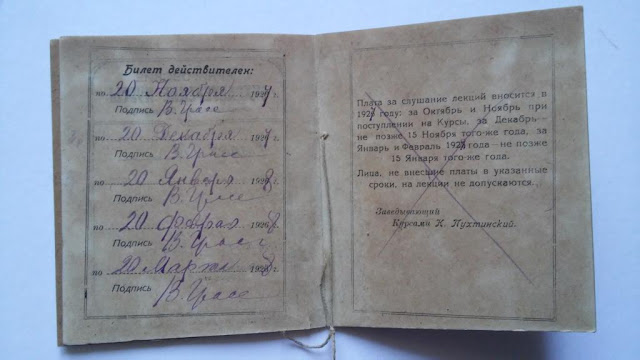 Билет действителен:
по 20 Ноября 1927 г.
Подпись
по 20 Декабря 1927 г.
Подпись
по 20 Января 1928 г.
Подпись
по 20 Февраля 1928 г.
Подпись
по 20 Марта 1928 г.
Подпись
Плата за слушание лекций вносится в
году: за Октябрь и Ноябрь при
поступлении на Курсы, за Декабрь—
не позже 15 Ноября того-же года, за
Январь и Февраль 1928 года—не позже
15 Января того-же года.
Лица, не внесшие платы в указанные
сроки, на лекции не допускаются.
Заведывающий
Курсами К. Пухтинский.